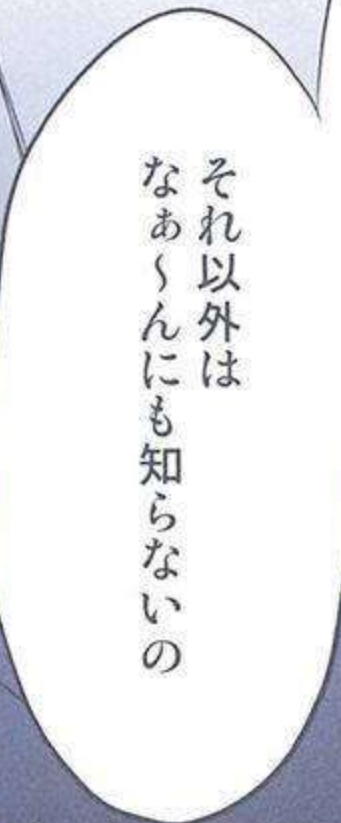 それ以外は
なぁ～んにも知らないの